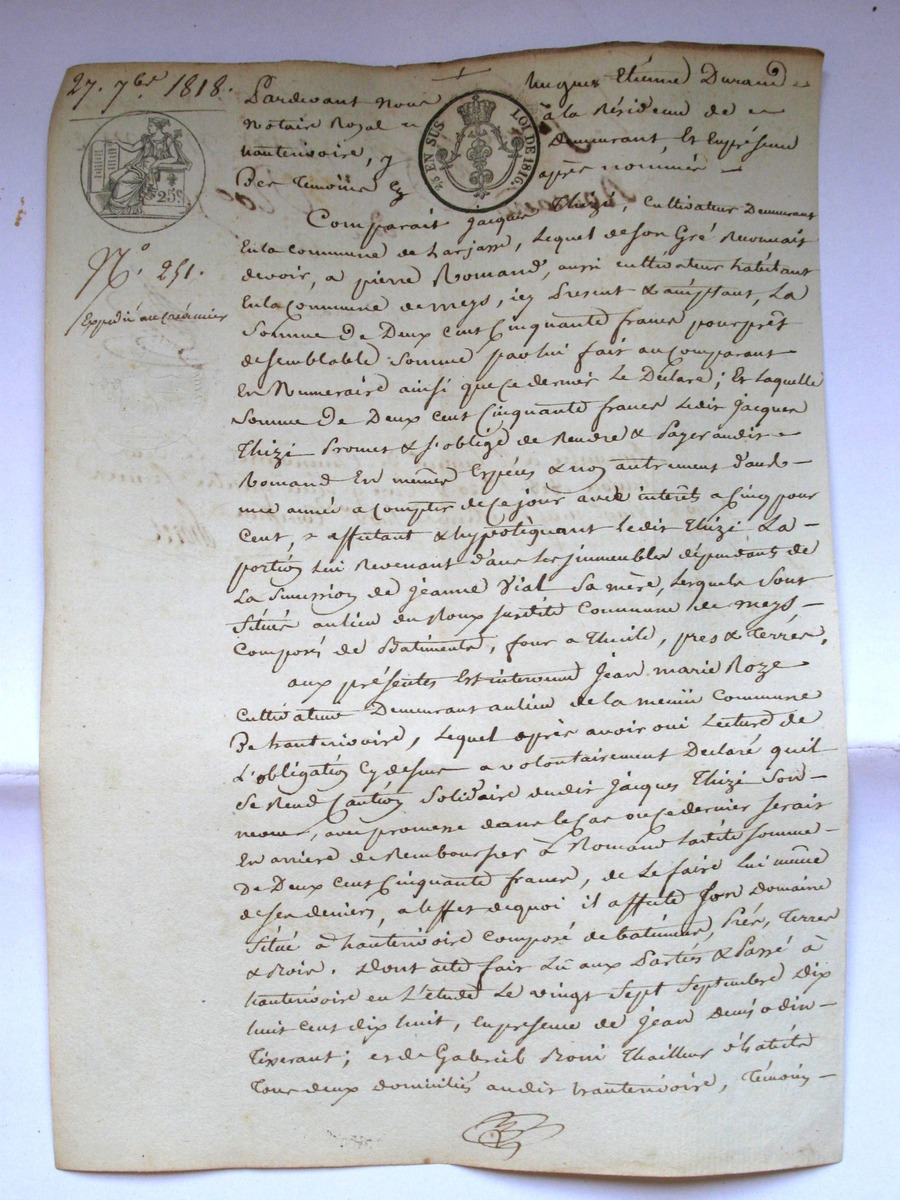 27. 7bre 1818.
Pardevant Nous Hugues Etienne Durand
Notaire Royal à la Résidence de
hauterivoire, y Demeurant, Et En présence
Des Témoins après nommés
25c
25c EN SUS LOI DE 1816.
No. 251.
Expédié au Créancier
Comparait Jacques Thizé, Cultivateur Demeurant
En la commune de Larjasse, Lequel de son Gré Reconnait
devoir, a pierre Romand, aussi cultivateur habitant
En la Commune de meys, icy Présent & acceptant, La
Somme de Deux cent Cinquante francs pour prêt
de semblable Somme par lui fait au Comparant
En Numeraire ainsi que ce dernier Le Déclare; Et Laquelle
Somme de Deux cent Cinquante francs Ledit Jacques
Thizé Promet & s'oblige de Rendre & Payer audit
Romand En mêmes Espèces & non autrement dans
une année a compter de ce jour avec intérêts a Cinq pour
Cent, y affectant & hypotéquant Ledit Thizé La
portion Lui Revenant dans Les jmmeubles dépendants de
La Succession de Jeanne Vial Sa mère, Lesquels Sont
Situés au lieu du Roux susdite Commune de meys
Composés de Batiments, four a Thuile, prés & Terres.
aux présentes Est intervenu Jean marie Roze
Cultivateur Demeurant au lieu de la Commune
De hauterivoire, Lequel après avoir oui Lecture de
L'obligation Cy dessus a volontairement Déclaré qu'il
Se Rend Caution Solidaire dudit Jacques Thizé Son
neveu, avec promesse dans le Cas ou ce dernier Serait
En arriere de Rembourser à Romand Ladite Somme
De Deux Cent Cinquante francs, de Le faire Lui même
de ses deniers, a l'effet de quoi il affecte Son Domaine
Situé a hauterivoire Composé de batiments, Prés, Terres
& Bois. Dont acte fait Lu aux Parties & Passé à
hauterivoire en L'étude Le vingt Sept Septembre Dix
huit cent dix huit, En présence de Jean Denis
Tisserant; et de Gabriel Thailleur d'habits
Tous deux domiciliés audit hauterivoire, Témoins